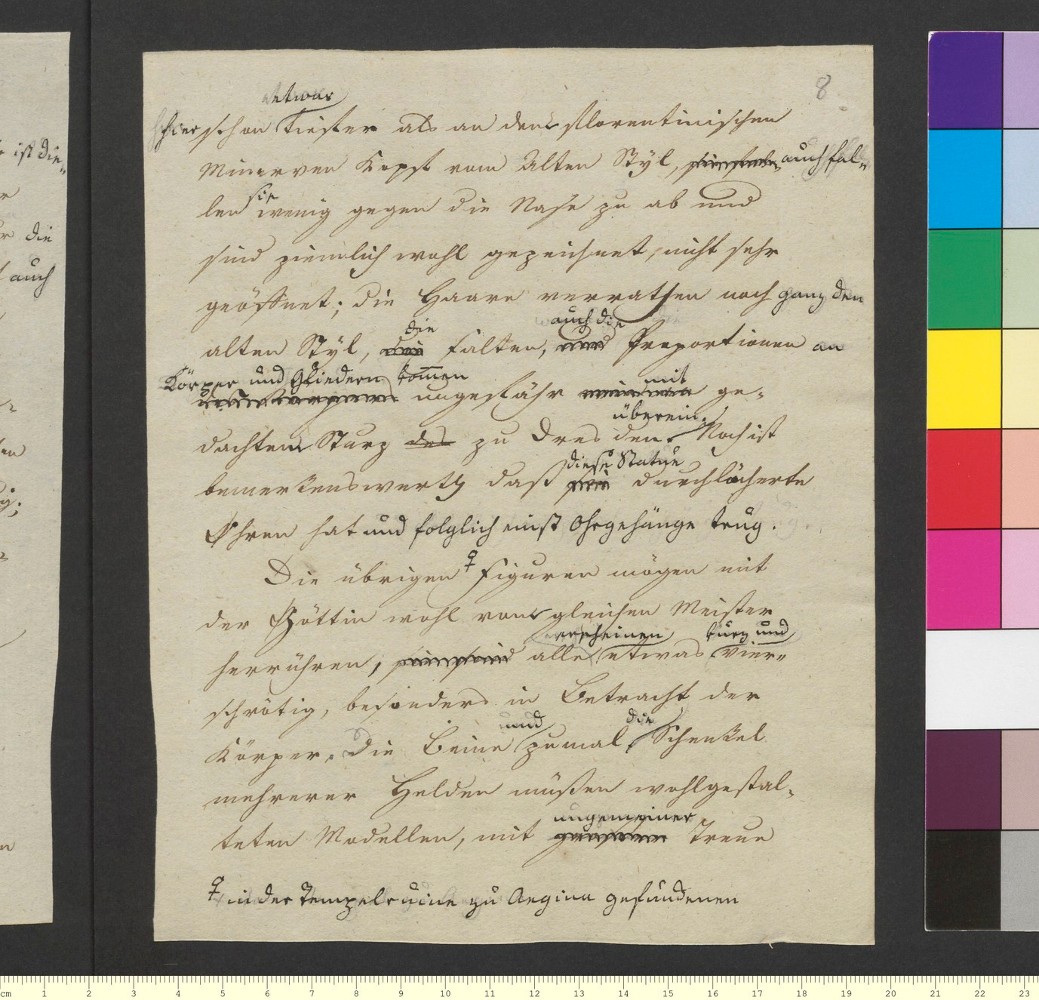 8
etwas
hier schon tiefer als an dem florentinischen
Minerven Kopf vom alten Styl, auch fal-
len sie wenig gegen die Nase zu ab und
sind ziemlich wohl gezeichnet, nicht sehr
geöffnet; die Haare verrathen noch ganz den
alten Styl, die Falten, auch die Proportionen an
Körper und Gliedern kommen ungefähr mit ge-
dachtem Sturz des zu Dresden überein. Noch ist
bemerkenswerth daß diese Statue durchlöcherte
Ohren hat und folglich einst Ohrgehänge trug.
Die übrigen Figuren mögen mit
der Göttin wohl vom gleichen Meister
herrühren, alle erscheinen etwas kurz und vier-
schrötig, besonders in Betracht der
Körper. Die Beine und zumal die Schenkel
mehrerer Helden müßen wohlgestal-
teten Modellen, mit ungemeiner Treue
in der Tempelruine zu Aegina gefundenen
ist die-
die
auch